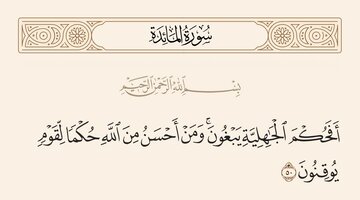 سُورَةُ المَائِدَةِ
بِسْمِ اللَّهِ الرَّحْمَٰنِ الرَّحِيمِ
أَفَحُكْمَ الْجَاهِلِيَّةِ يَبْغُونَ ۚ وَمَنْ أَحْسَنُ مِنَ اللَّهِ حُكْمًا لِّقَوْمٍ
يُوقِنُونَ ٥٠